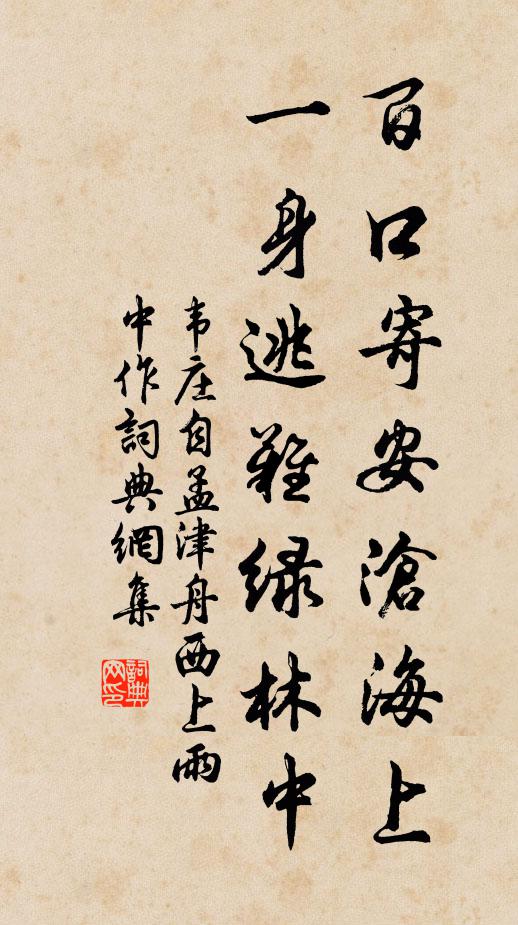 百口寄安滄海上
一身逃難绿林中
韦庄自孟津舟西上雨
中作詞典網集
詞典
网印